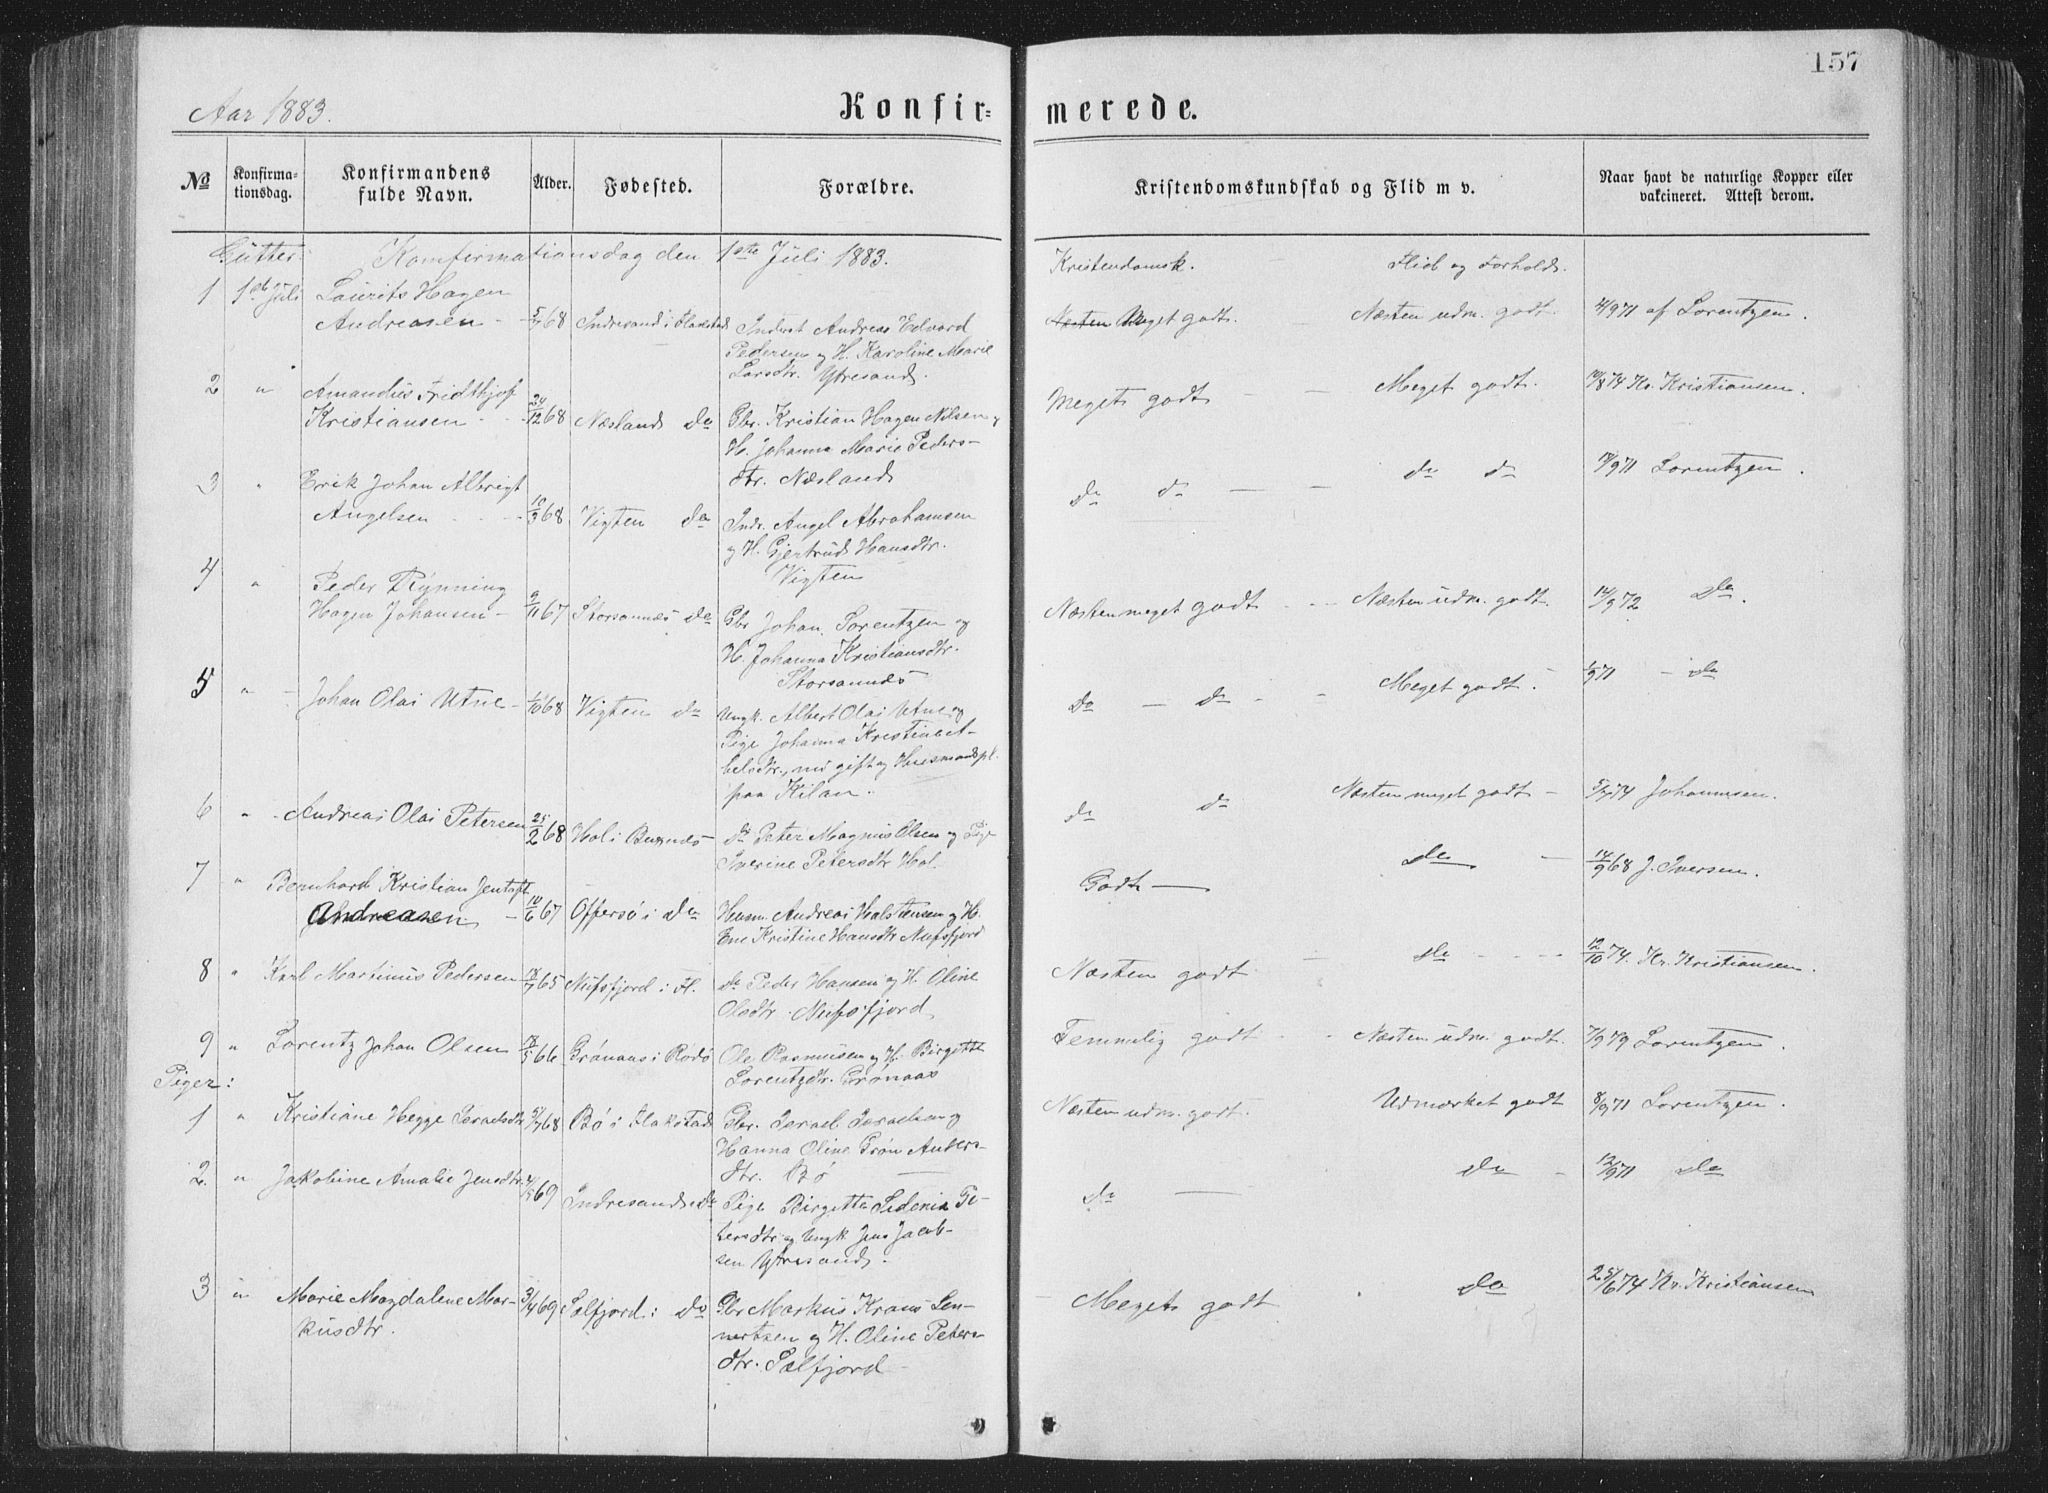 157
Aar 1883.
Konfir=
merede.
No
Konfirma-
tionsdag.
Konfirmandens
fulde Navn.
Alder.
Fødested.
Forældre.
Kristendomskundskab og Flid m v.
Naar havt de naturlige Kopper eller
vakcineret. Attest derom.
Gutter: Konfirmationsdag den 1ste Juli 1883.
Kristendomsk. Flid og Forhold.
1 1ste Juli Laurits Hagen
Andreasen 5/7 68 Indresand i Flakstad Inderst Andreas Edvard
Pedersen og H. Karoline Marie
Larsdtr. Ytresand.
Næsten Meget godt. Næsten udm. godt 4/9 71 af Lorentzen.
2 " Amandus Fridthjof
Kristiansen 24/12 68 Næsland do Gbr. Kristian Hagen Nilsen og
H. Johanna Marie Peders-
dtr. Næsland
Meget godt Meget godt. 19/8 74 Kr. Kristiansen.
3 " Erik Johan Albrigt
Angelsen 10/9 68 Vigten do Indr. Angel Abrahamsen
og H. Gjertrud Hansdtr.
Vigten
do do do do 13/9 71 Lorentzen.
4 " Peder Rynning
Hagen Johansen 9/11 67 Storsannæs do Gbr Johan Lorentzen og
H. Johanna Kristiansdtr.
Storsannæs
Næsten meget godt Næsten udm. godt. 14/9 72 Do.
5 " Johan Olai Utne 1/10 68 Vigten do Ungk. Albert Olai Utne og
Pige Johanna Kristine A-
belsdtr., nu gift og Husmandspl.
paa Kilan.
Do do Meget godt. 1/9 71 do
6 " Andreas Olai Petersen 25/2 68 Hol i Buxnæs do Peter Magnus Olsen og Pige
Iverine Petersdtr Hol
do do Næsten meget godt 5/7 74 Johannsen.
7 " Bernhard Kristian Jentoft
Andreasen 10/6 67 Offersø i do Husm. Andreas Halstensen og H.
Ene Kristine Hansdtr Nufsfjord
Godt do 14/9 68 J. Iversen.
8 " Karl Martinus Pedersen 18/7 65 Nufsfjord i Fl. do Peder Hansen og H. Oline
Olsdtr. Nufsfjord
Næsten godt do 12/10 74. Kr. Kristiansen.
9 " Lorentz Johan Olsen 18/5 66 Grønaas i Rødø Ole Rasmusen og H. Birgitte
Lorentzdtr. Grønaas
Temmelig godt Næsten udm. godt. 7/9 79 Lorentzen.
Piger:
1 " Kristiane Hegge Israelsdtr 5/7 68 Bø i Flakstad Gbr. Israel Israelsen og
Hanna Oline Grøn Anders-
dtr. Bø
Næsten udm. godt. Udmærket godt 8/9 71 Lorentzen.
2. " Jakobine Amalie Jensdtr. 4/5 69 Indresand i do Pige Birgitte Sidenia Pe-
tersdtr og Ungk Jens Jacob-
sen Ytresand.
do do 12/9 71 do
3 " Marie Magdalene Mar-
kusdtr. 3/4 69 Sælfjord i do Gbr Markus Krans Len-
nertsen og H. Oline Peters
dtr. Sælfjord
Meget godt do 25/6 74 Kr. Kristiansen